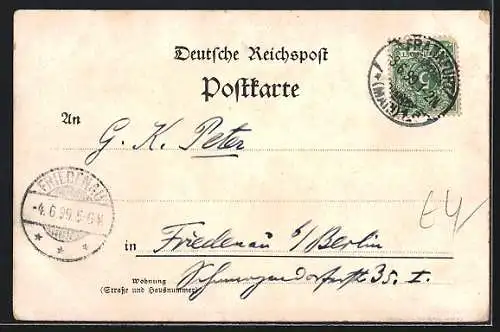 Deutsche Reichspost
Postkarte
An
G. K. Peter
FRIEDENAU
-4. 6. 99. 5-6 N.
in Friedenau b/Berlin
Wohnung
(Straße und Hausnummer)
35. I.